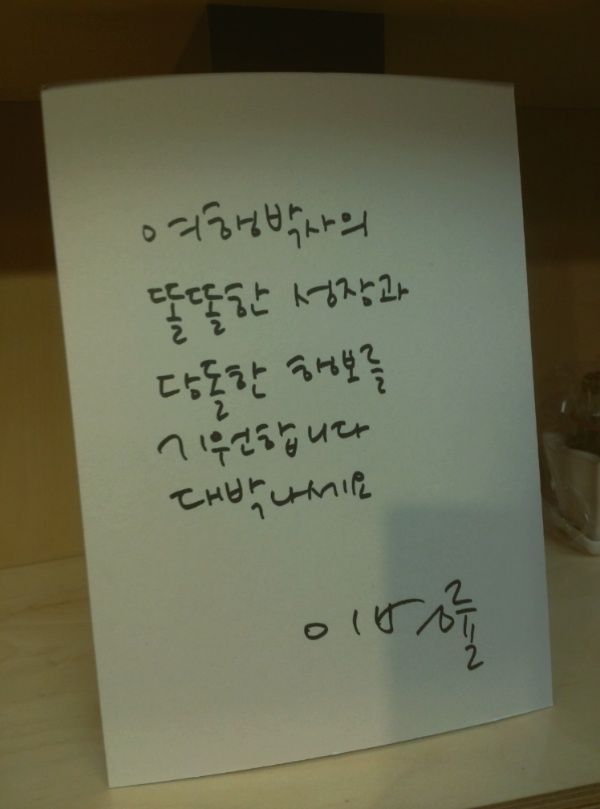 여행박사의
똘똘한 성장과
당돌한 행보를
기원합니다
대박나세요
이병률